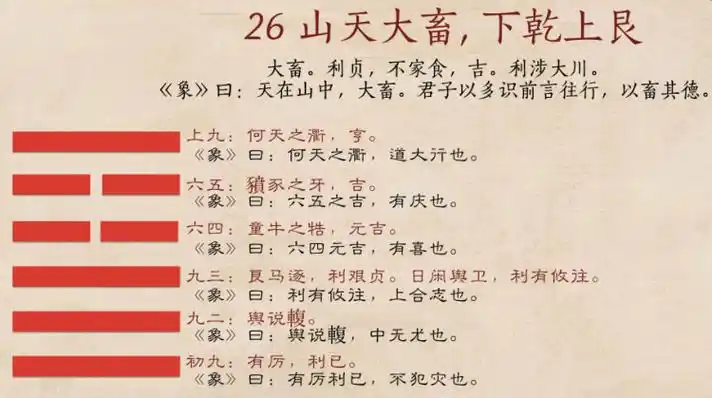 26 山天大畜，下乾上艮
大畜。利贞，不家食，吉。利涉大川。
《象》曰：天在山中，大畜。君子以多识前言往行，以畜其德。
上九：何天之衢，亨。
《象》曰：何天之衢，道大行也。
六五：豮豕之牙，吉。
《象》曰：六五之吉，有庆也。
六四：童牛之牿，元吉。
《象》曰：六四元吉，有喜也。
九三：良马逐，利艰贞。日闲舆卫，利有攸往。
《象》曰：利有攸往，上合志也。
九二：舆说輹。
《象》曰：舆说輹，中无尤也。
初九：有厉，利已。
《象》曰：有厉利已，不犯灾也。